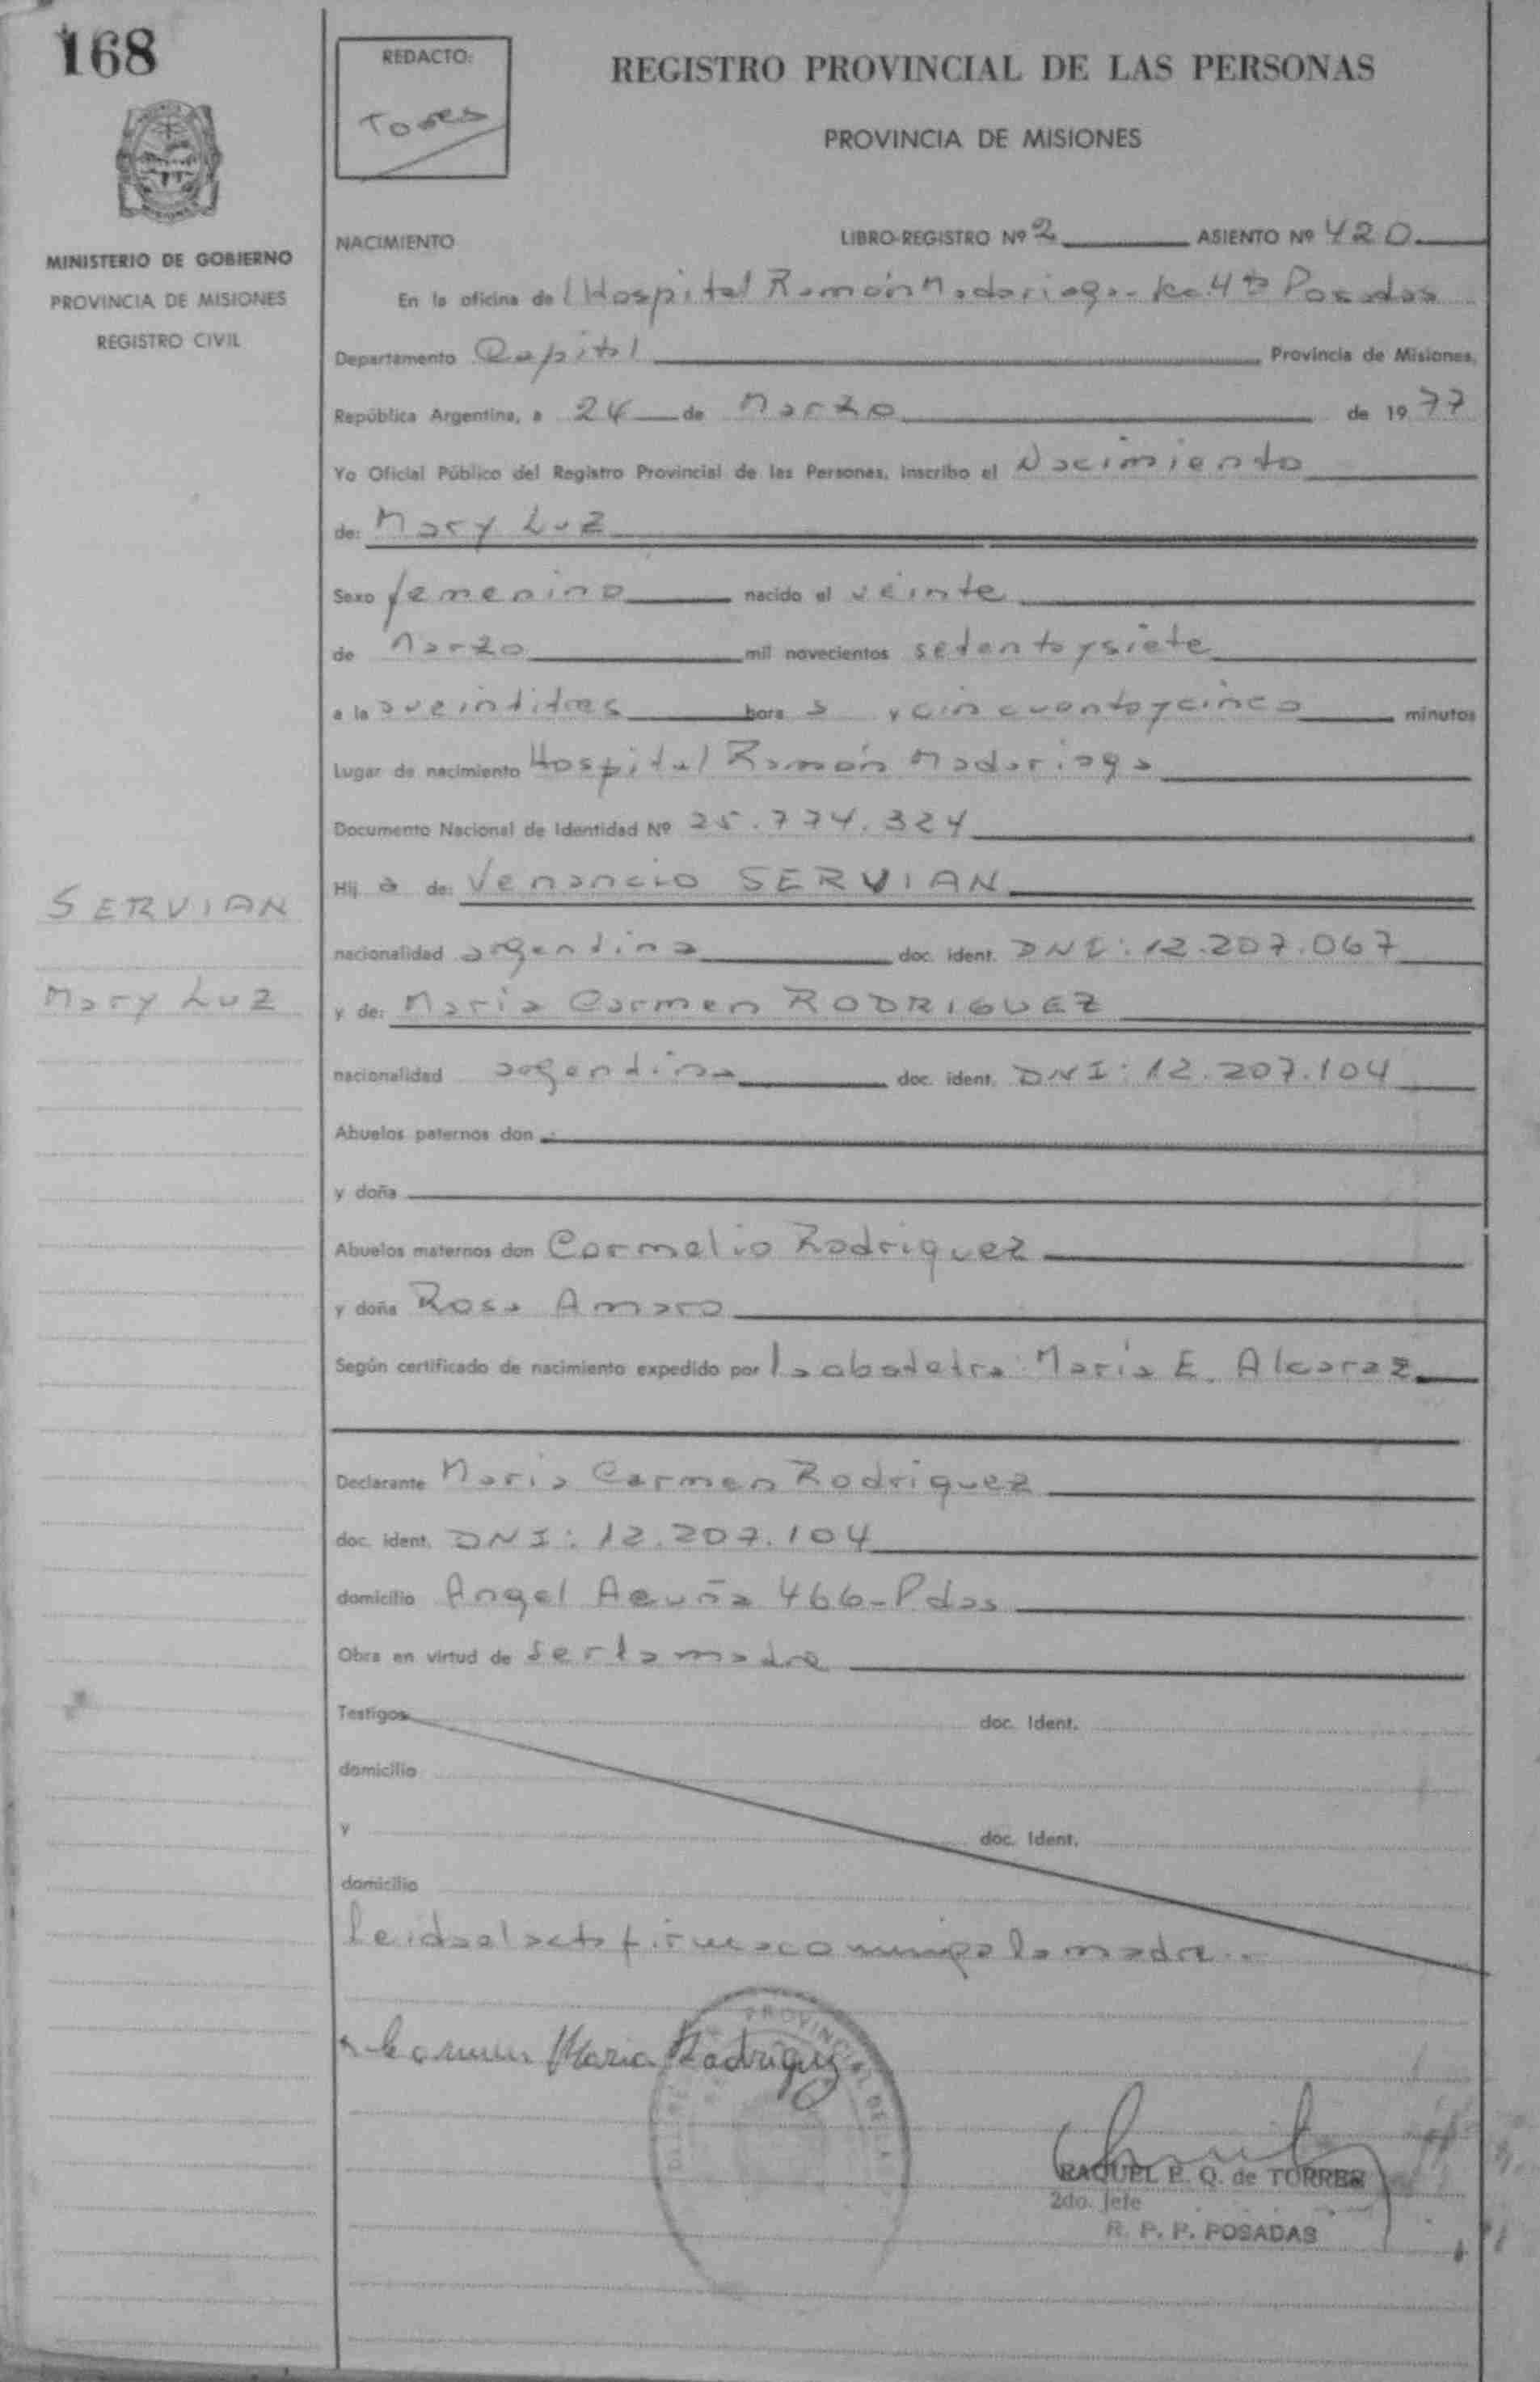 168
REDACTO:
Torres
REGISTRO PROVINCIAL DE LAS PERSONAS
PROVINCIA DE MISIONES
MINISTERIO DE GOBIERNO
PROVINCIA DE MISIONES
REGISTRO CIVIL
NACIMIENTO LIBRO-REGISTRO Nº 2 ASIENTO Nº 420
En la oficina del Hospital Ramón Madariaga - Posadas
Departamento Capital Provincia de Misiones,
República Argentina, a 24 de Marzo de 1977
Yo Oficial Público del Registro Provincial de las Personas, inscribo el Nacimiento
de: Mary Luz
Sexo femenino nacido el veinte
de Marzo mil novecientos setenta y siete
a las veintitres horas y cincuenta y cinco minutos
Lugar de nacimiento Hospital Ramón Madariaga
Documento Nacional de Identidad Nº 25.774.324
Hija de: Venancio SERVIAN
SERVIAN
nacionalidad argentina doc. ident. DNI: 12.207.067
Mary Luz
y de: Maria Carmen RODRIGUEZ
nacionalidad argentina doc. ident. DNI: 12.207.104
Abuelos paternos don
y doña
Abuelos maternos don Carmelio Rodriguez
y doña Rosa Amaro
Según certificado de nacimiento expedido por la obstetra Maria E. Alcaraz
Declarante Maria Carmen Rodriguez
doc. ident. DNI: 12.207.104
domicilio Angel Acuña 466-Pdas
Obra en virtud de ser la madre
Testigos doc. Ident.
domicilio
y doc. Ident.
domicilio
Leida el acta firma conmigo la madre..
Carmen Maria Rodriguez
PROVINCIAL DE LA
RAQUEL E. Q. de TORRES
2do. Jefe
R. P. P. POSADAS